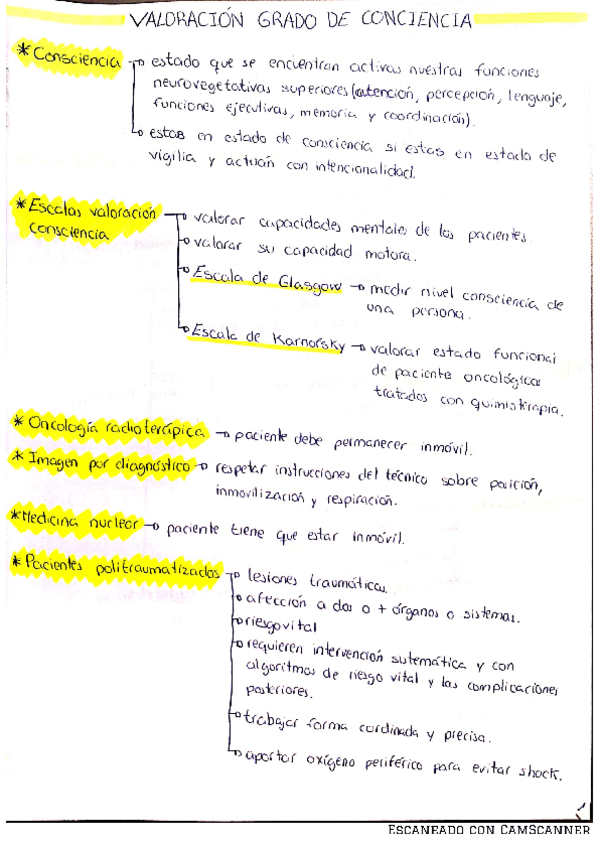 VALORACIÓN GRADO DE CONCIENCIA
* Consciencia → estado que se encuentran activas nuestras funciones
neurovegetativas superiores (atención, percepción, lenguaje,
funciones ejecutivas, memoria y coordinación).
→ estas en estado de consciencia si estas en estado de
vigilia y actúan con intencionalidad.
* Escalas valoración → valorar capacidades mentales de los pacientes.
consciencia → valorar su capacidad motora.
→ Escala de Glasgow → medir nivel consciencia de
una persona.
→ Escala de Karnofsky → valorar estado funcional
de paciente oncológico
tratados con quimioterapia.
* Oncología radioterápica → paciente debe permanecer inmóvil.
* Imagen por diagnóstico → respetar instrucciones del técnico sobre posición,
inmovilización y respiración.
* Medicina nuclear → paciente tiene que estar inmóvil.
* Pacientes politraumatizados → lesiones traumáticas.
→ afección a dos o + órganos o sistemas.
→ riesgo vital
→ requieren intervención sistemática y con
algoritmos de riesgo vital y las complicaciones
posteriores.
→ trabajar forma cordinada y precisa.
→ aportar oxígeno periférico para evitar shock.
ESCANEADO CON CAMSCANNER